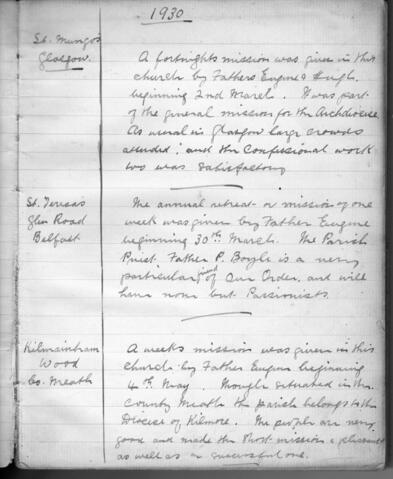 1930
St. Mungos
Glasgow.
A fortnights mission was given in this
church by Fathers Eugene & Hugh
beginning 2nd March. It was part
of the general mission for the Archdiocese
As usual in Glasgow large crowds
attended; and the Confessional work
too was satisfactory
St. Teresas
Glen Road
Belfast
The annual retreat or mission of one
week was given by Father Eugene
beginning 30th March. The Parish
Priest Father P. Boyle is a very
particular friend of Our Order. and will
have none but Passionists.
Kilmainham
Wood
Co. Meath
A weeks mission was given in this
church by Father Eugene beginning
4th May. Though situated in the
County Meath the parish belongs to the
Diocese of Kilmore. The people are very
good and made the short mission a pleasant
as well as a successful one.